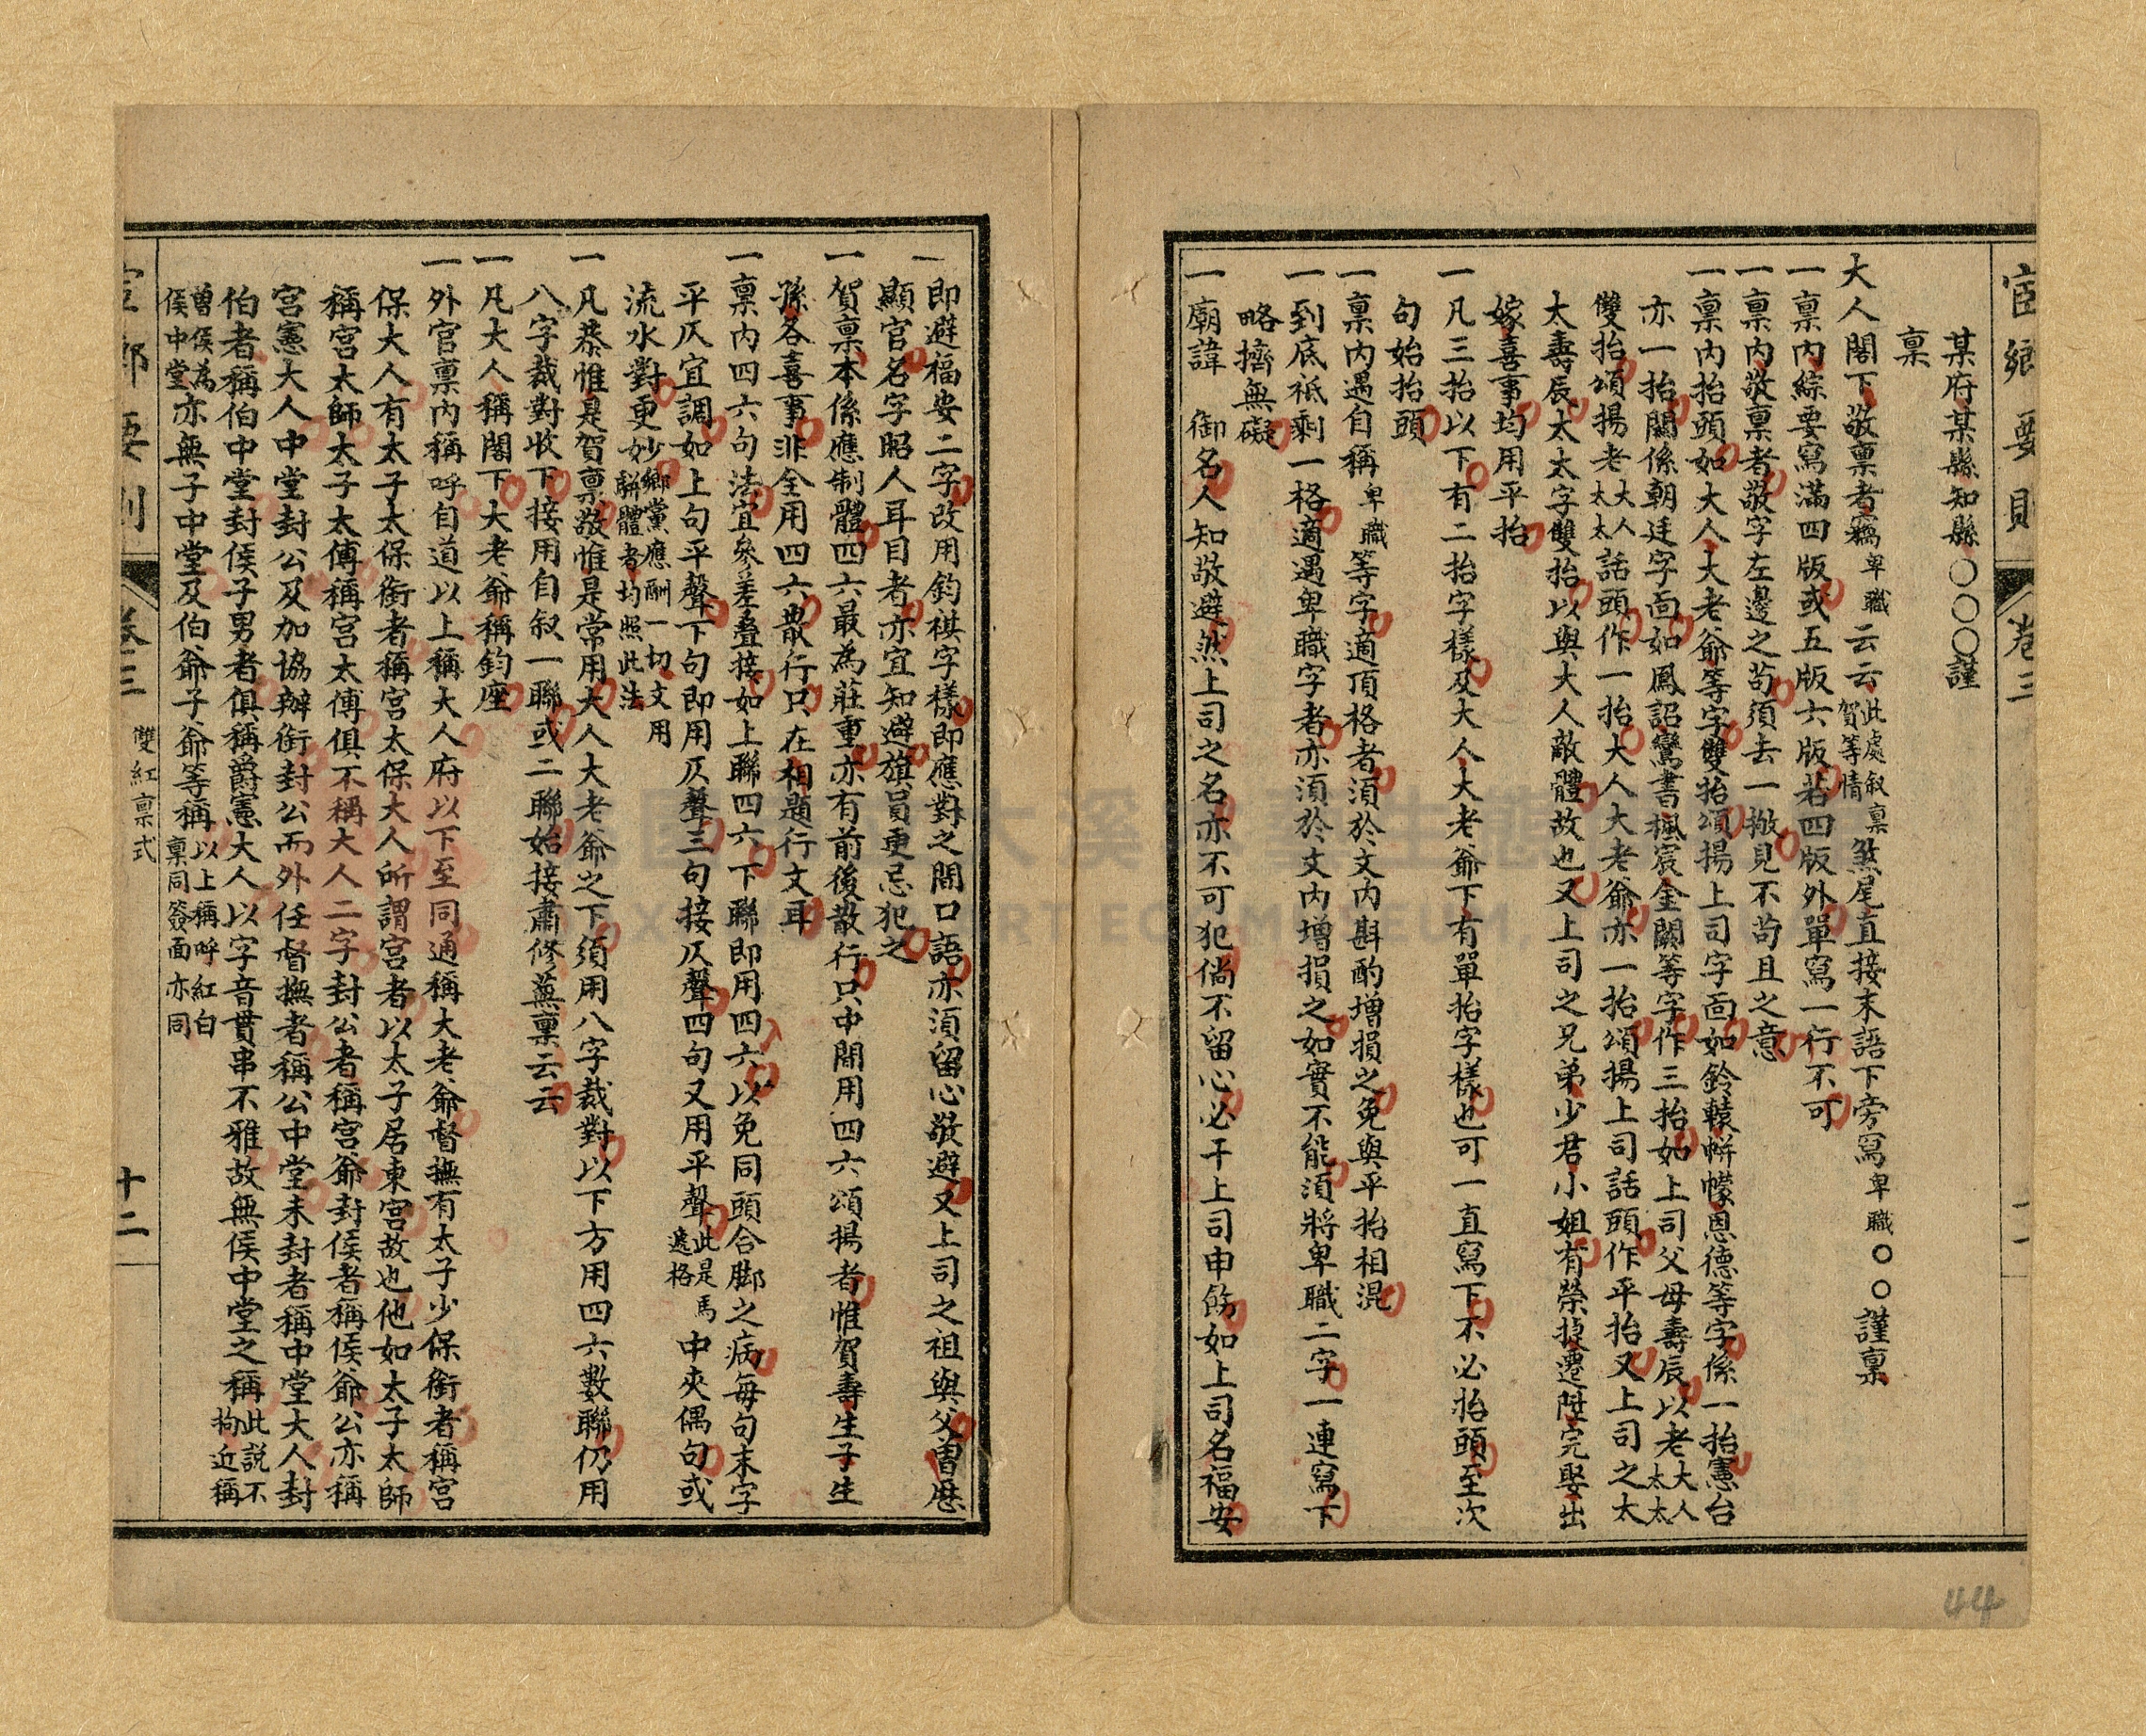 宦鄉要則
卷三
十一
某府某縣知縣〇〇〇謹
稟
大人閣下敬稟者竊卑職云云此處叙稟賀等情煞尾直接末語下旁寫卑職〇〇謹稟
一稟內綜要寫滿四版或五版六版若四版外單寫一行不可
一稟內敬稟者敬字左邊之苟須去一撇見不苟且之意
一稟內抬頭如大人大老爺等字雙抬頌揚上司字面如鈴轅帡幪恩德等字係一抬憲台
亦一抬關係朝廷字面如鳳詔鸞書楓宸金闕等字作三抬如上司父母壽辰以老大人太太
雙抬頌揚老大人太太話頭作一抬大人大老爺亦一抬頌揚上司話頭作平抬又上司之太
太壽辰太太字雙抬以與大人敵體故也又上司之兄弟少君小姐有榮掉遷陞完娶出
嫁喜事均用平抬
一凡三抬以下有二抬字樣及大人大老爺下有單抬字樣也可一直寫下不必抬頭至次
句始抬頭
一稟內遇自稱卑職等字適頂格者須於文內斟酌增損之免與平抬相混
一到底祇剩一格適遇卑職字者亦須於文內增損之如實不能須將卑職二字一連寫下
略擠無礙
一廟諱 御名人知敬避然上司之名亦不可犯倘不留心必干上司申飭如上司名福安
即避福安二字改用鈞祺字樣即應對之間口語亦須留心敬避又上司之祖與父曾歷
顯官名字昭人耳目者亦宜知避旗員更忌犯之
一賀稟本係應制體四六最為莊重亦有前後散行只中間用四六頌揚者惟賀壽生子生
孫各喜事非全用四六散行只在相題行文耳
一稟內四六句法宜參差疊接如上聯四六下聯即用四六以免同頭合脚之病每句末字
平仄宜調如上句平聲下句即用仄聲三句接仄聲四句又用平聲此是馬遞格中夾偶句或
流水對更妙鄉黨應酬一切文用駢體者均照此法
一凡恭惟是賀稟敬惟是常用大人大老爺之下須用八字裁對以下方用四六數聯仍用
八字裁對收下接用自叙一聯或二聯始接肅修蕪稟云云
一凡大人稱閣下大老爺稱鈞座
一外官稟內稱呼自道以上稱大人府以下至同通稱大老爺督撫有太子少保銜者稱宮
保大人有太子太保銜者稱宮太保大人所謂宮者以太子居東宮故也他如太子太師
稱宮太師太子太傅稱宮太傅俱不稱大人二字封公者稱宮爺封侯者稱侯爺公亦稱
宮憲大人中堂封公及加協辦銜封公而外任督撫者稱公中堂未封者稱中堂大人封
伯者稱伯中堂封侯子男者俱稱爵憲大人以字音貫串不雅故無侯中堂之稱此說不拘近稱
曾侯為侯中堂亦無子中堂及伯爺子爺等稱以上稱呼紅白稟同簽面亦同
卷三
雙紅稟式
十二
44